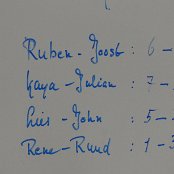 Ruben - Joost : 6 -
Kaya - Julian : 7 -
Luis - John : 5 -
Rene - Ruud : 1 - 3